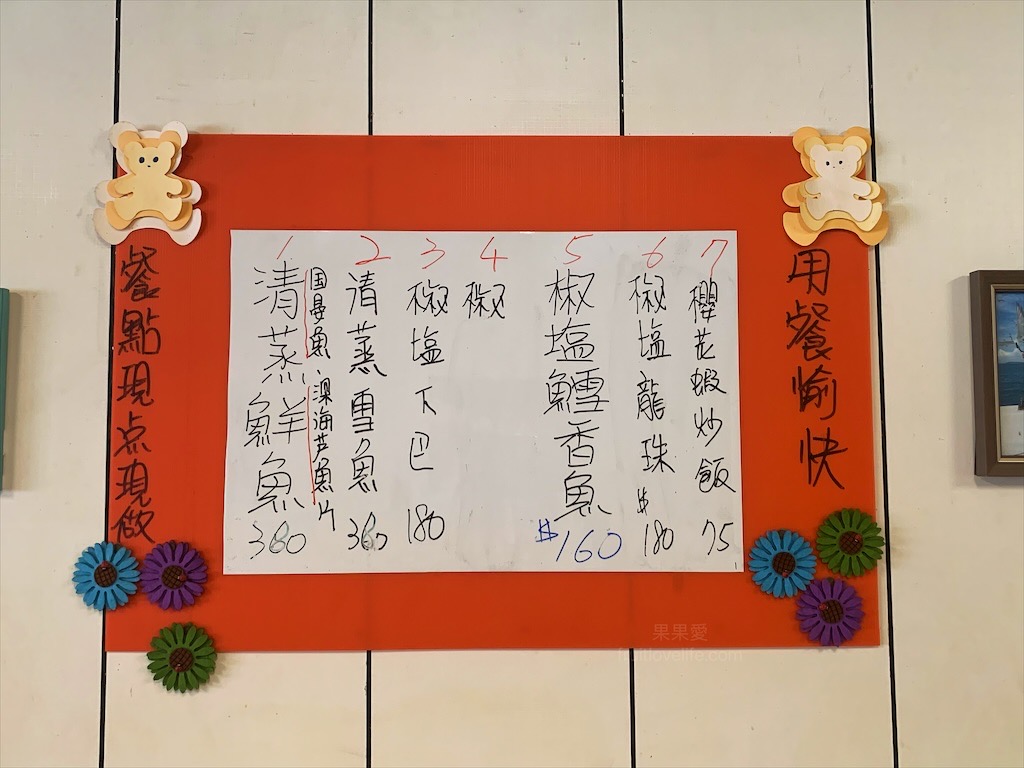 餐點現点現做
1
清蒸鮮魚
国曼魚、深海芦魚片
2
清蒸雪魚
360
3
椒塩下巴
180
4
椒
5
椒塩鱈香魚
$160
6
椒塩龍珠
$180
7
櫻花蝦炒飯
75
用餐愉快
果果愛